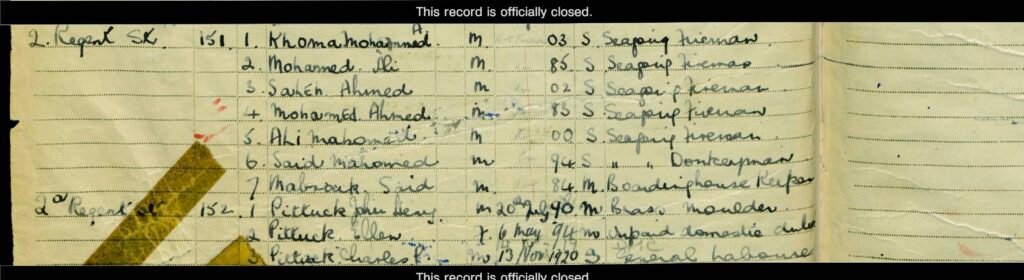 This record is officially closed.
2. Regent St. 151. 1. Khoma Mohammed A M 03 S Seagoing Fireman
2. Mohamed Ali M. 85. S Seagoing Fireman
3 Saheh Ahmed M 02 S Seagoing Fireman
4 Mohamed Ahmed M 83 S Seagoing Fireman
5. Ali Mahomed M 00 S Seagoing Fireman
6. Said Mahomed M 94 S " " Donkeyman
7 Mabrouk Said M. 84 M. Boardinghouse Keeper
2a Regent St. 152. 1 Pittuck John Henry M 20th July 90 M. Brass Moulder
2 Pittuck Ellen F 6 May 94 M Unpaid domestic
3 Pittuck Charles M 13 Nov 1920 S General Labourer
This record is officially closed.